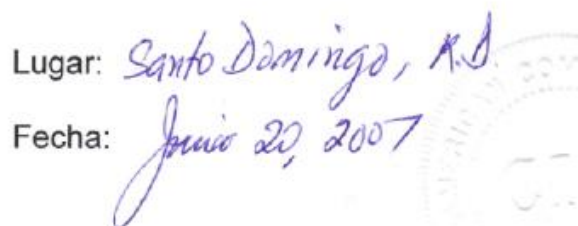 Lugar: Santo Domingo, R.D.
Fecha: Junio 20, 2007